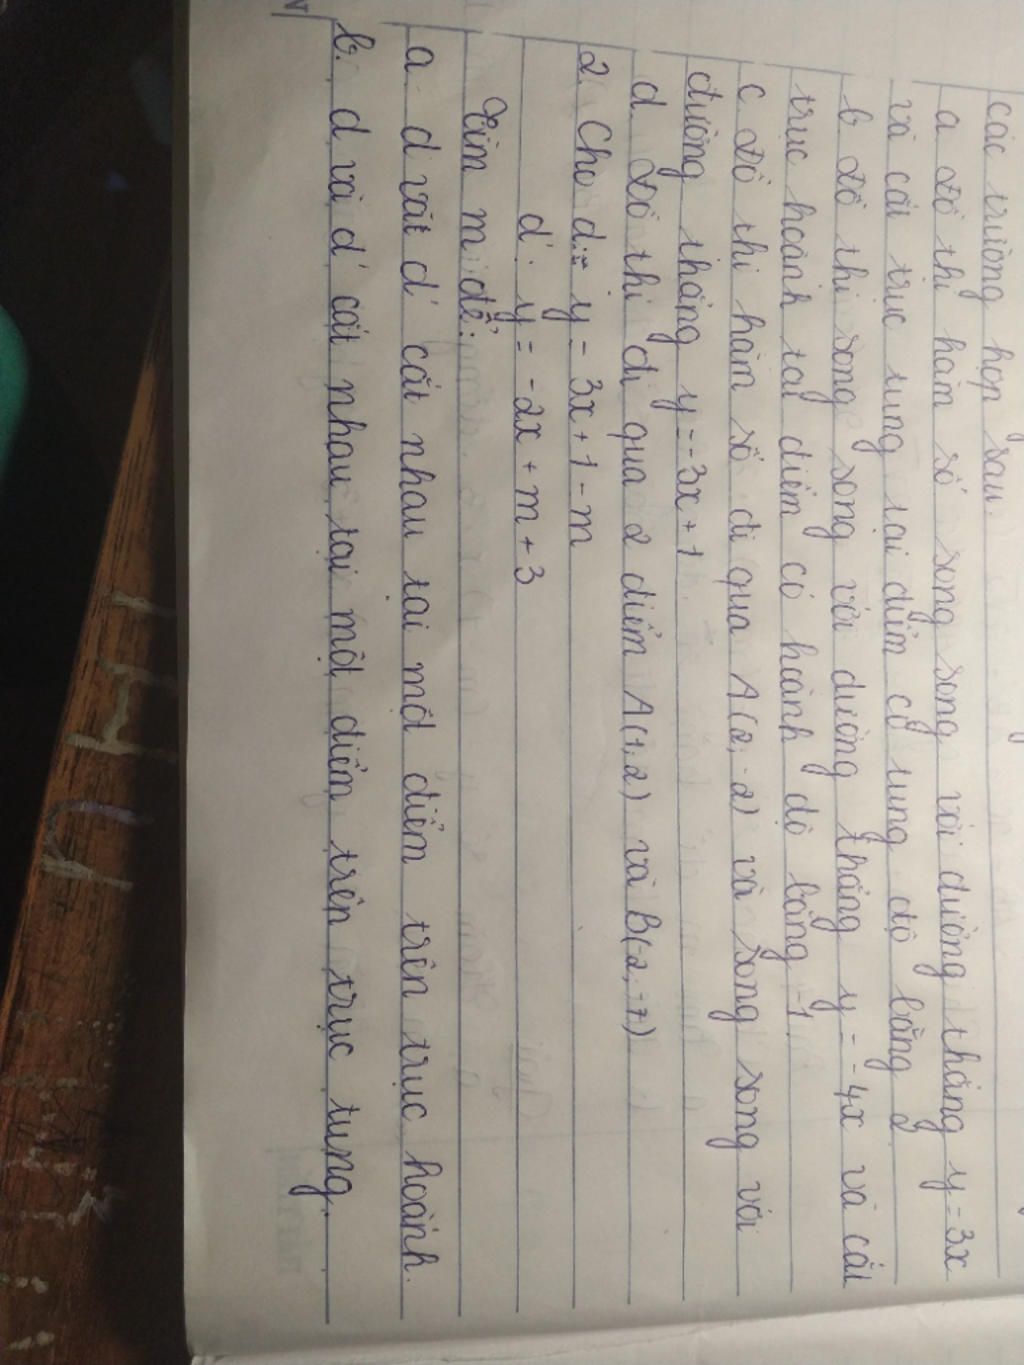 các trường hợp sau.
a đồ thị hàm số song song với đường thẳng y = 3x
và cắt trục tung tại điểm có tung độ bằng 2
b đồ thị song song với đường thẳng y = -4x và cắt
trục hoành tại điểm có hoành độ bằng -1.
c. Đồ thị hàm số đi qua A(2, -2) và song song với
đường thẳng y = -3x + 1
d. Đồ thị đi qua 2 điểm A(1, 2) và B(-2, -7)
2. Cho d: y = 3x + 1 - m
d': y = -2x + m + 3
Tìm m để:
a. d và d' cắt nhau tại một điểm trên trục hoành.
b. d và d' cắt nhau tại một điểm trên trục tung.